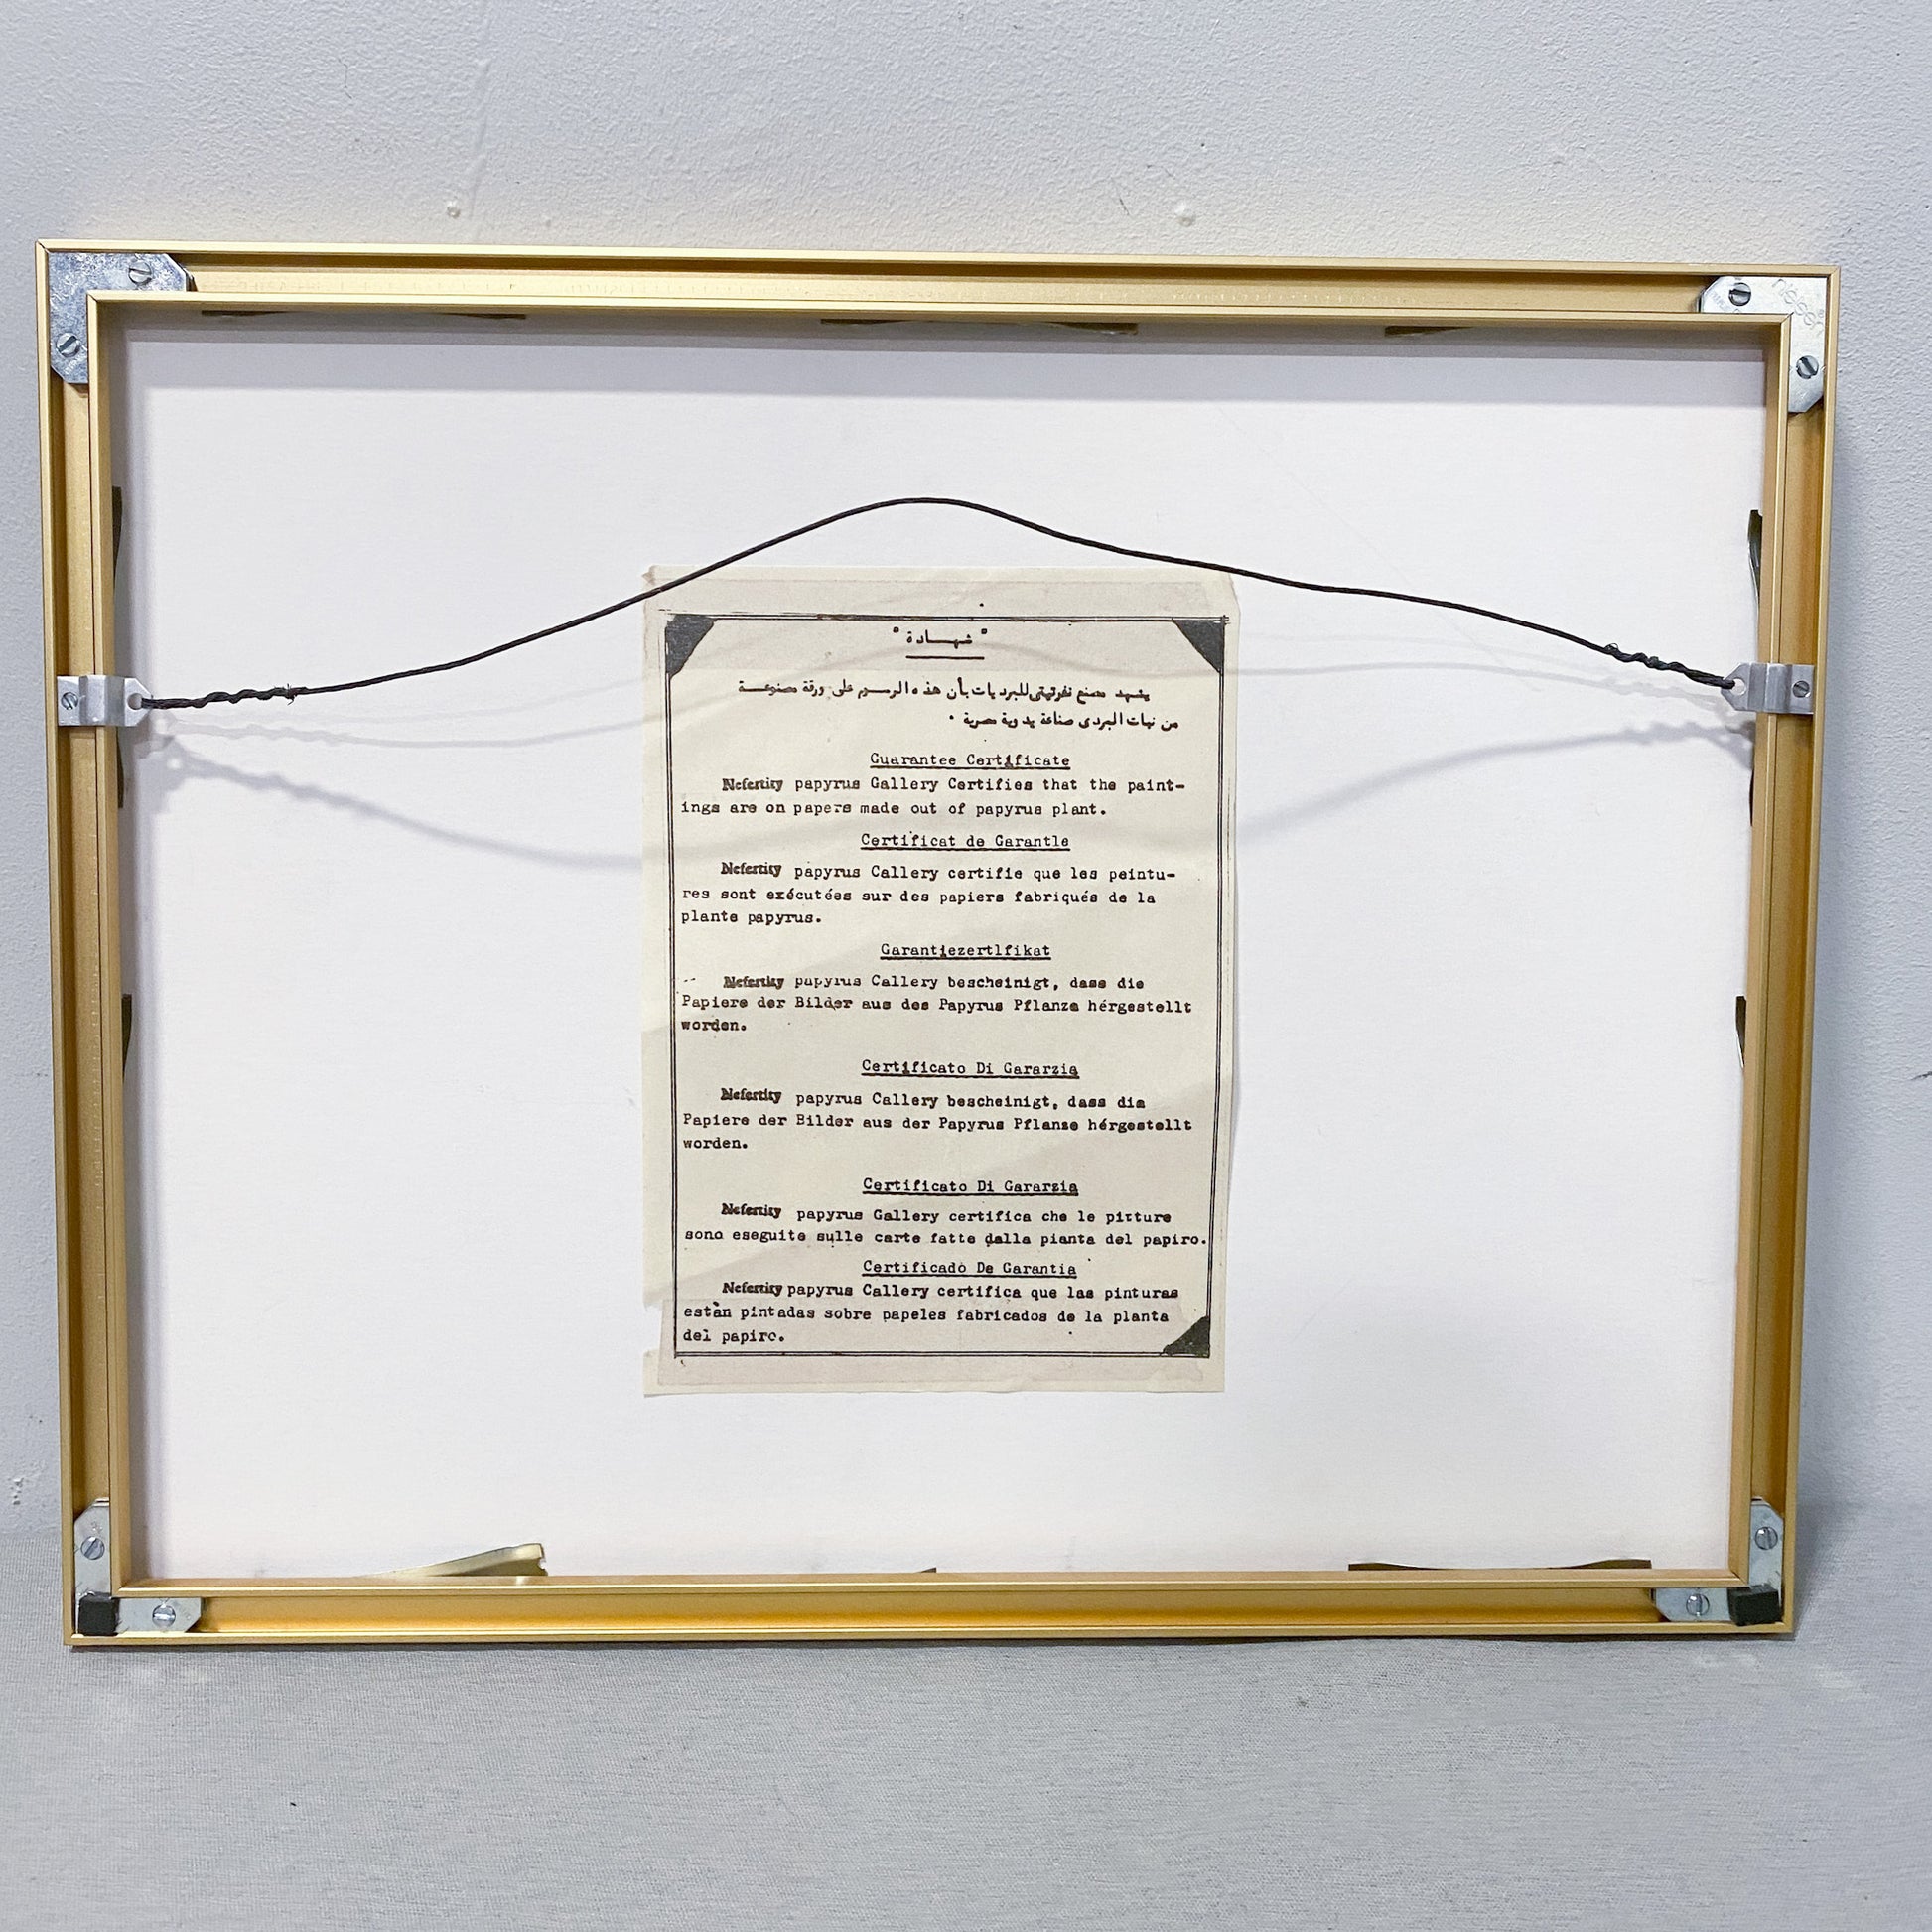 " شهــادة "
يشهد مصنع نفرتيتى للبرديات بأن هذه الرسوم على ورقة مصنوعة
من نبات البردى صناعة يدوية مصرية .
Guarantee Certificate
Nefertity papyrus Gallery Certifies that the paint-
ings are on papers made out of papyrus plant.
Certificat de Garantle
Nefertity papyrus Callery certifie que les peintu-
res sont exécutées sur des papiers fabriqués de la
plante papyrus.
Garantiezertlfikat
Nefertity papyrus Callery bescheinigt, dass die
Papiere der Bilder aus des Papyrus Pflanze hérgestellt
worden.
Certificato Di Gararzia
Nefertity papyrus Callery bescheinigt, dass dia
Papiere der Bilder aus der Papyrus Pflanse hérgestellt
worden.
Certificato Di Gararzia
Nefertity papyrus Gallery certifica che le pitture
sono eseguite sulle carte fatte dalla pianta del papiro.
Certificado De Garantia
Nefertity papyrus Callery certifica que las pinturas
están pintadas sobre papeles fabricados de la planta
del papiro.